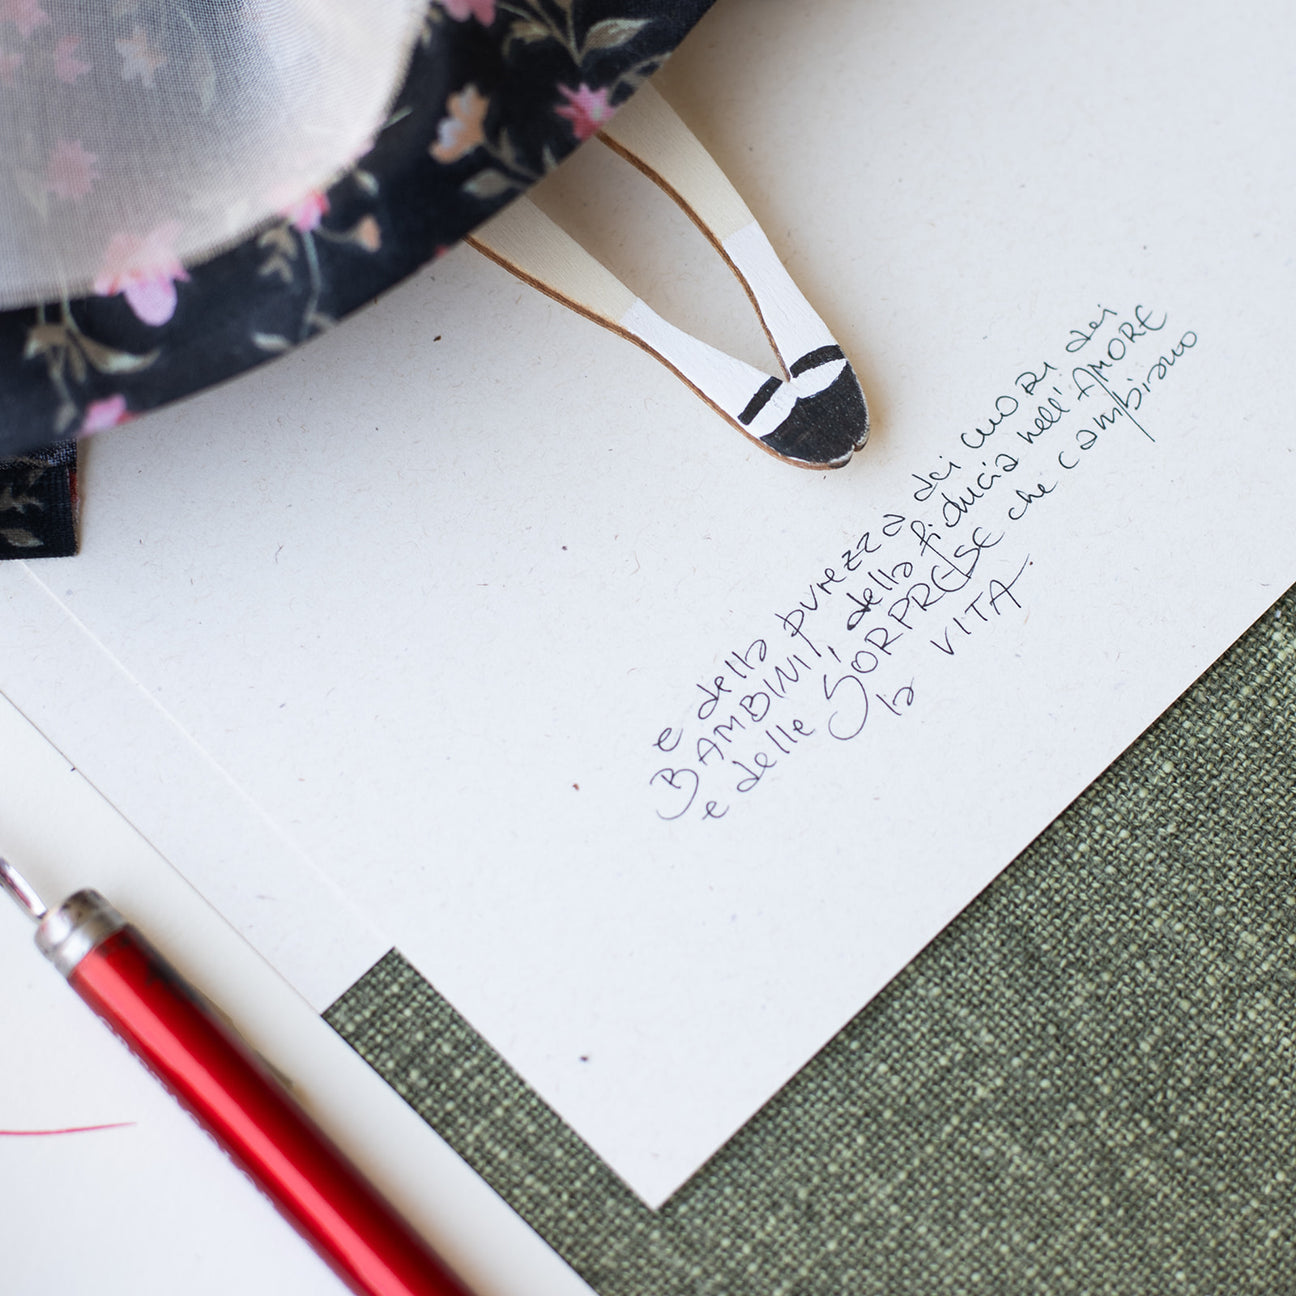 e della purezza dei cuORI dei
BAMBINI, della fiducia nell'AMORE
e delle SORPRESE che cambiano
la VITA.